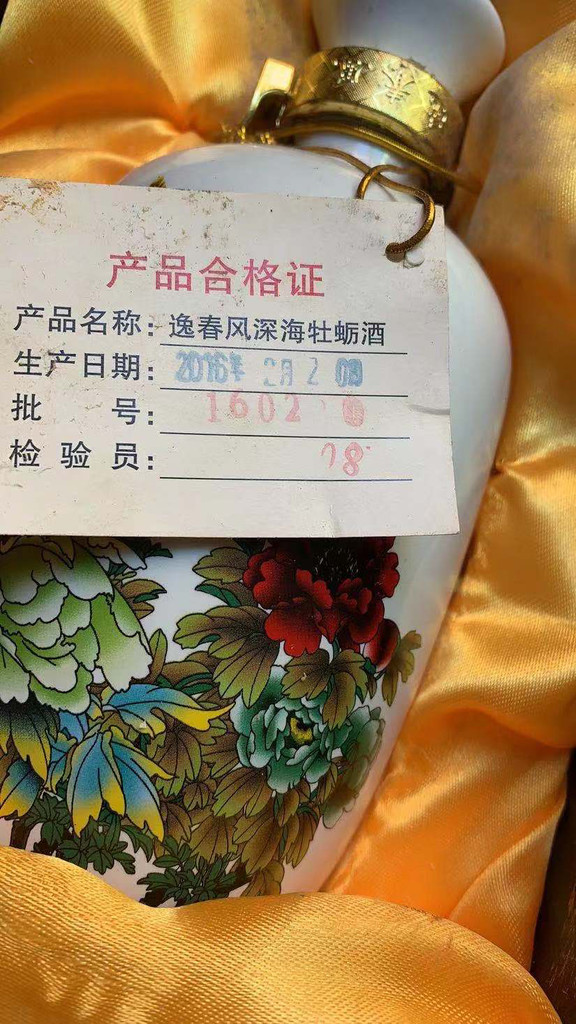 产品合格证
产品名称：逸春风深海牡蛎酒
生产日期：2016年 2月2
批 号：1602
检 验 员：